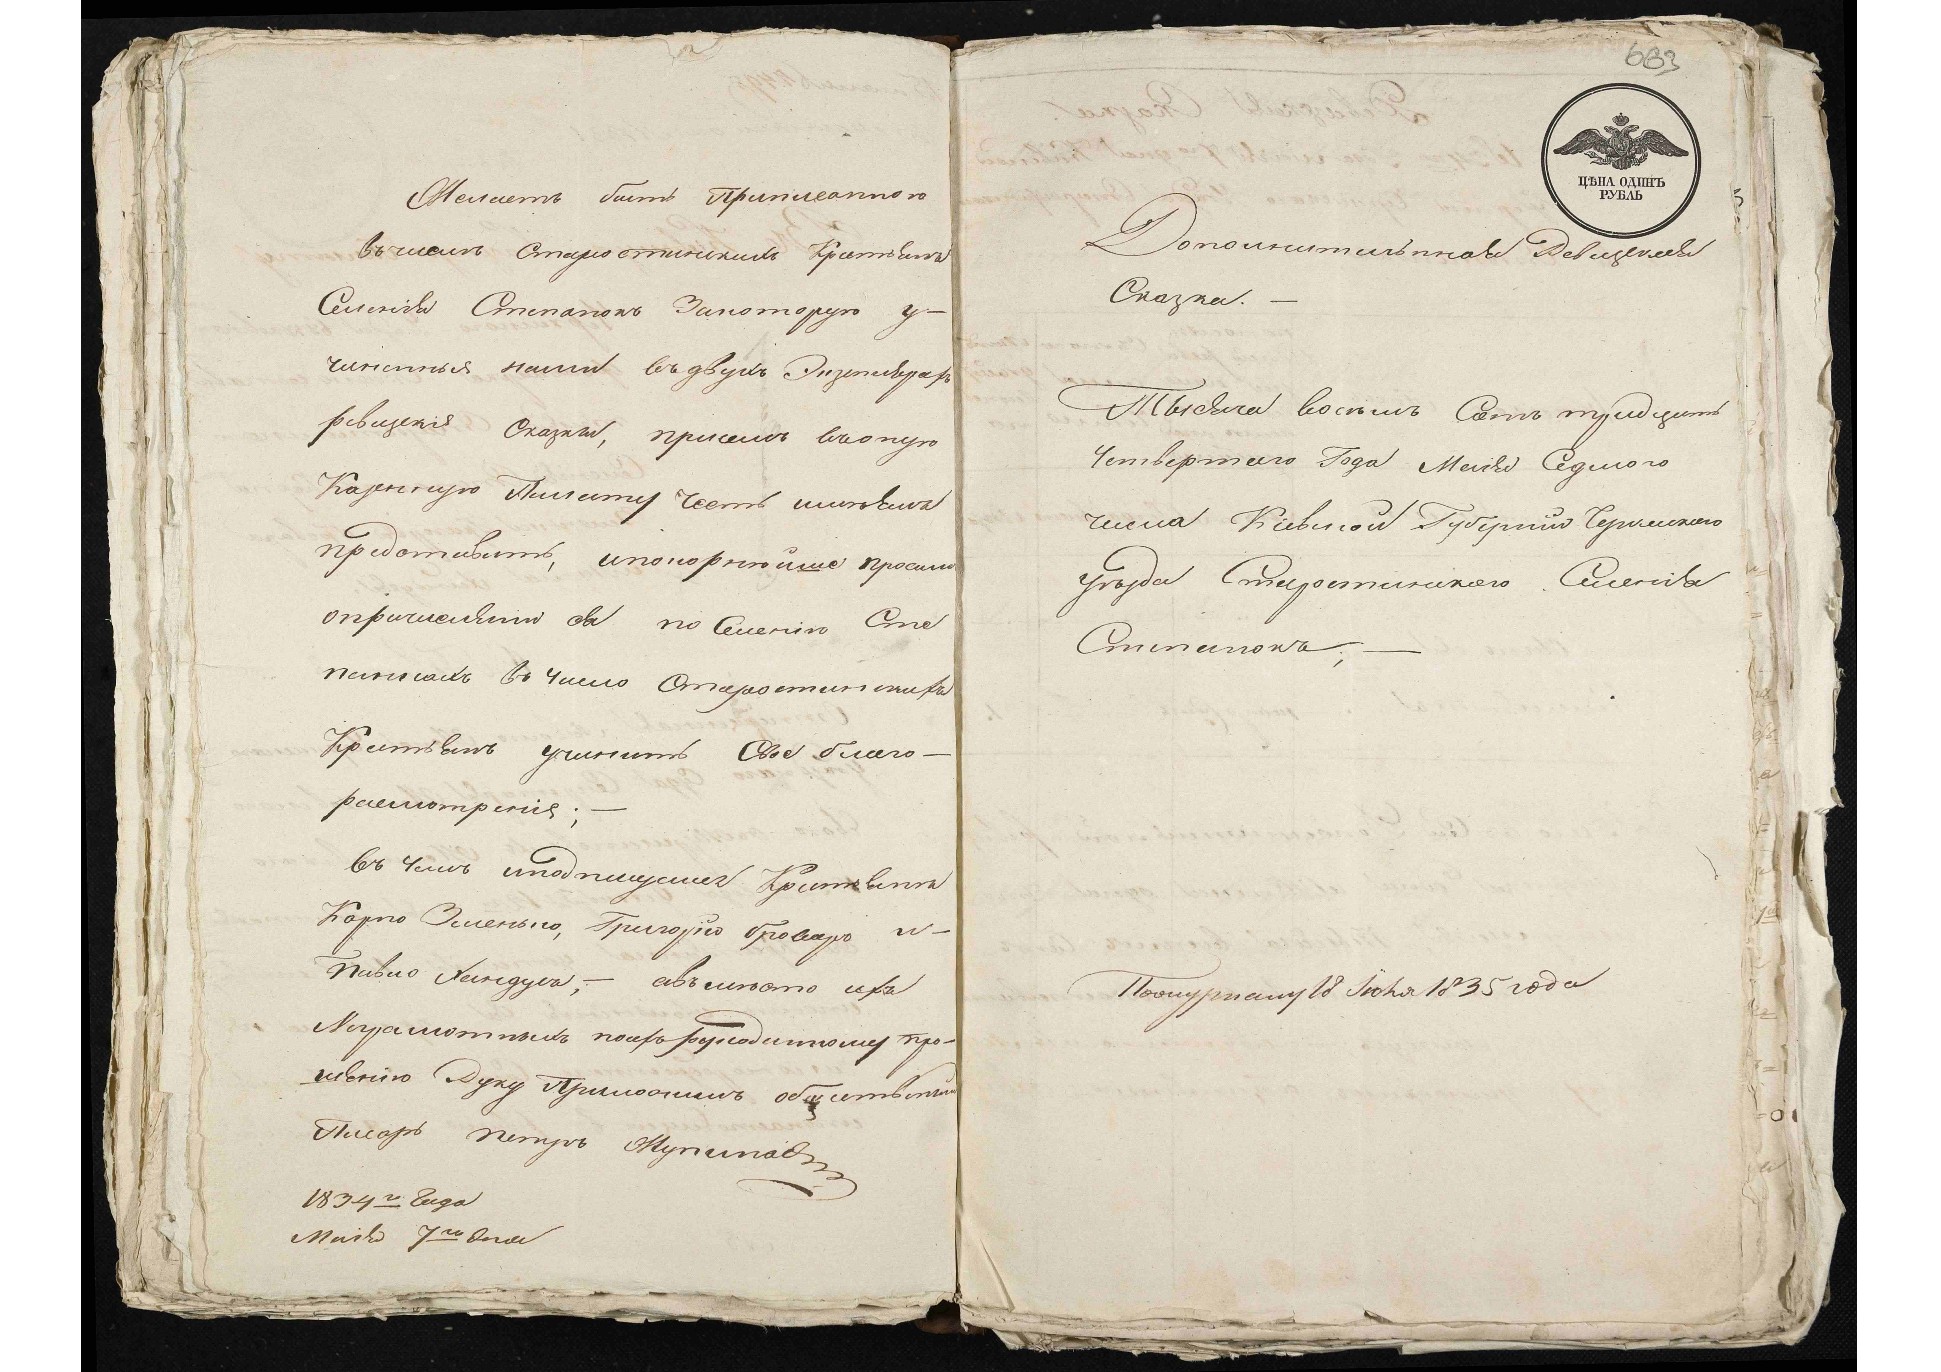 Желаетъ быть Приписанного
въчислъ старостинскихъ Крестьянъ
Селенія Степанокъ Закоторую у-
чиненныя нами въдвухъ Экземплярахъ
ревизскія сказки, присемъ въоную
Казенную Палату Честь имѣемъ
предоставить, ипокорнѣйше просимъ
опричисленіи ея по Селенію Сте
панкахъ въ число Старостинскихъ
Крестьянъ учинить Свое благо-
разсмотреніе; —
въ чемъ иподпишуемся Крестьяне
Карпо Зеленько, Григорій броваръ и-
Павло Хандусъ; — авъместо ихъ
Неграмотныхъ поихъ рукоданному про-
шенію Руку Приложилъ общественный
Писарь Петръ
1834го Года
Маія 7го дня
683
ЦѢНА ОДИНЪ
РУБЛЬ
Дополнительная Ревизская
Сказка. —
Тысяча восемъ Сотъ тридцать
Четвертаго Года Маія Седмого
числа Кіевской Губерніи Черкаскаго
уѣзда Старостинскаго Селенія
Степанокъ; —
18 Іюня 1835 года